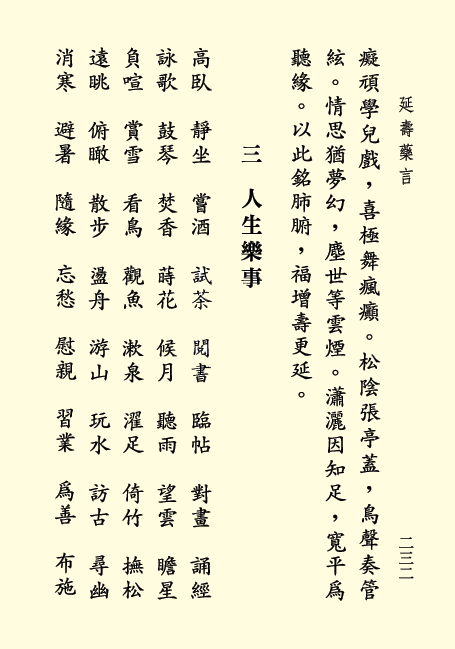 延壽藥言
二三二
癡頑學兒戲，喜極舞瘋癲。松陰張亭蓋，鳥聲奏管
絃。情思猶夢幻，塵世等雲煙。瀟灑因知足，寬平為
聽緣。以此銘肺腑，福增壽更延。
三　人生樂事
高臥　靜坐　嘗酒　試茶　閱書　臨帖　對畫　誦經
詠歌　鼓琴　焚香　蒔花　候月　聽雨　望雲　瞻星
負喧　賞雪　看鳥　觀魚　漱泉　濯足　倚竹　撫松
遠眺　俯瞰　散步　盪舟　游山　玩水　訪古　尋幽
消寒　避暑　隨緣　忘愁　慰親　習業　為善　布施